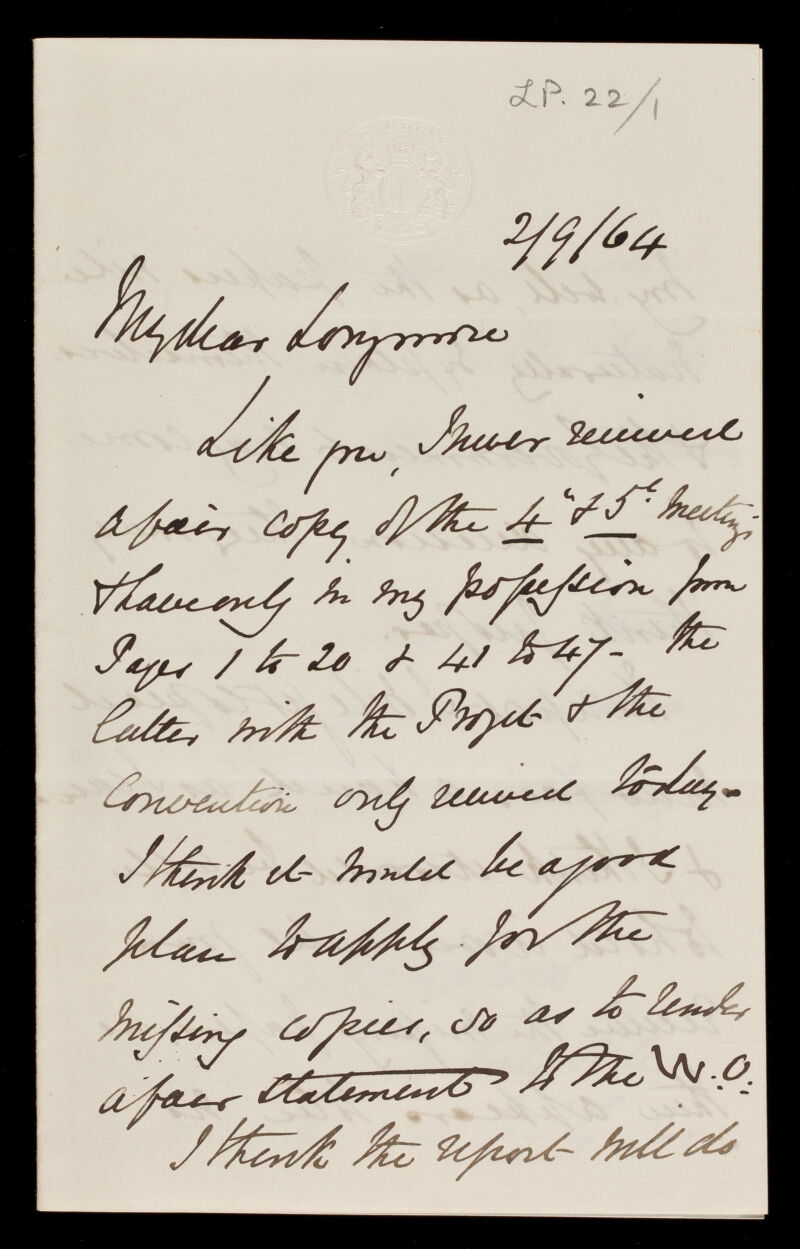 LP. 22/1
2/9/64
My dear Longmore
Like you, I never received
a fair copy of the 4h & 5t Meetings
& have only in my possession from
Pages 1 to 20 & 41 to 47 - the
latter with the Projet & the
Convention only received today -
I think it would be a good
plan to apply for the
missing copies, so as to render
a fair statement to the W.O.
I think the report will do